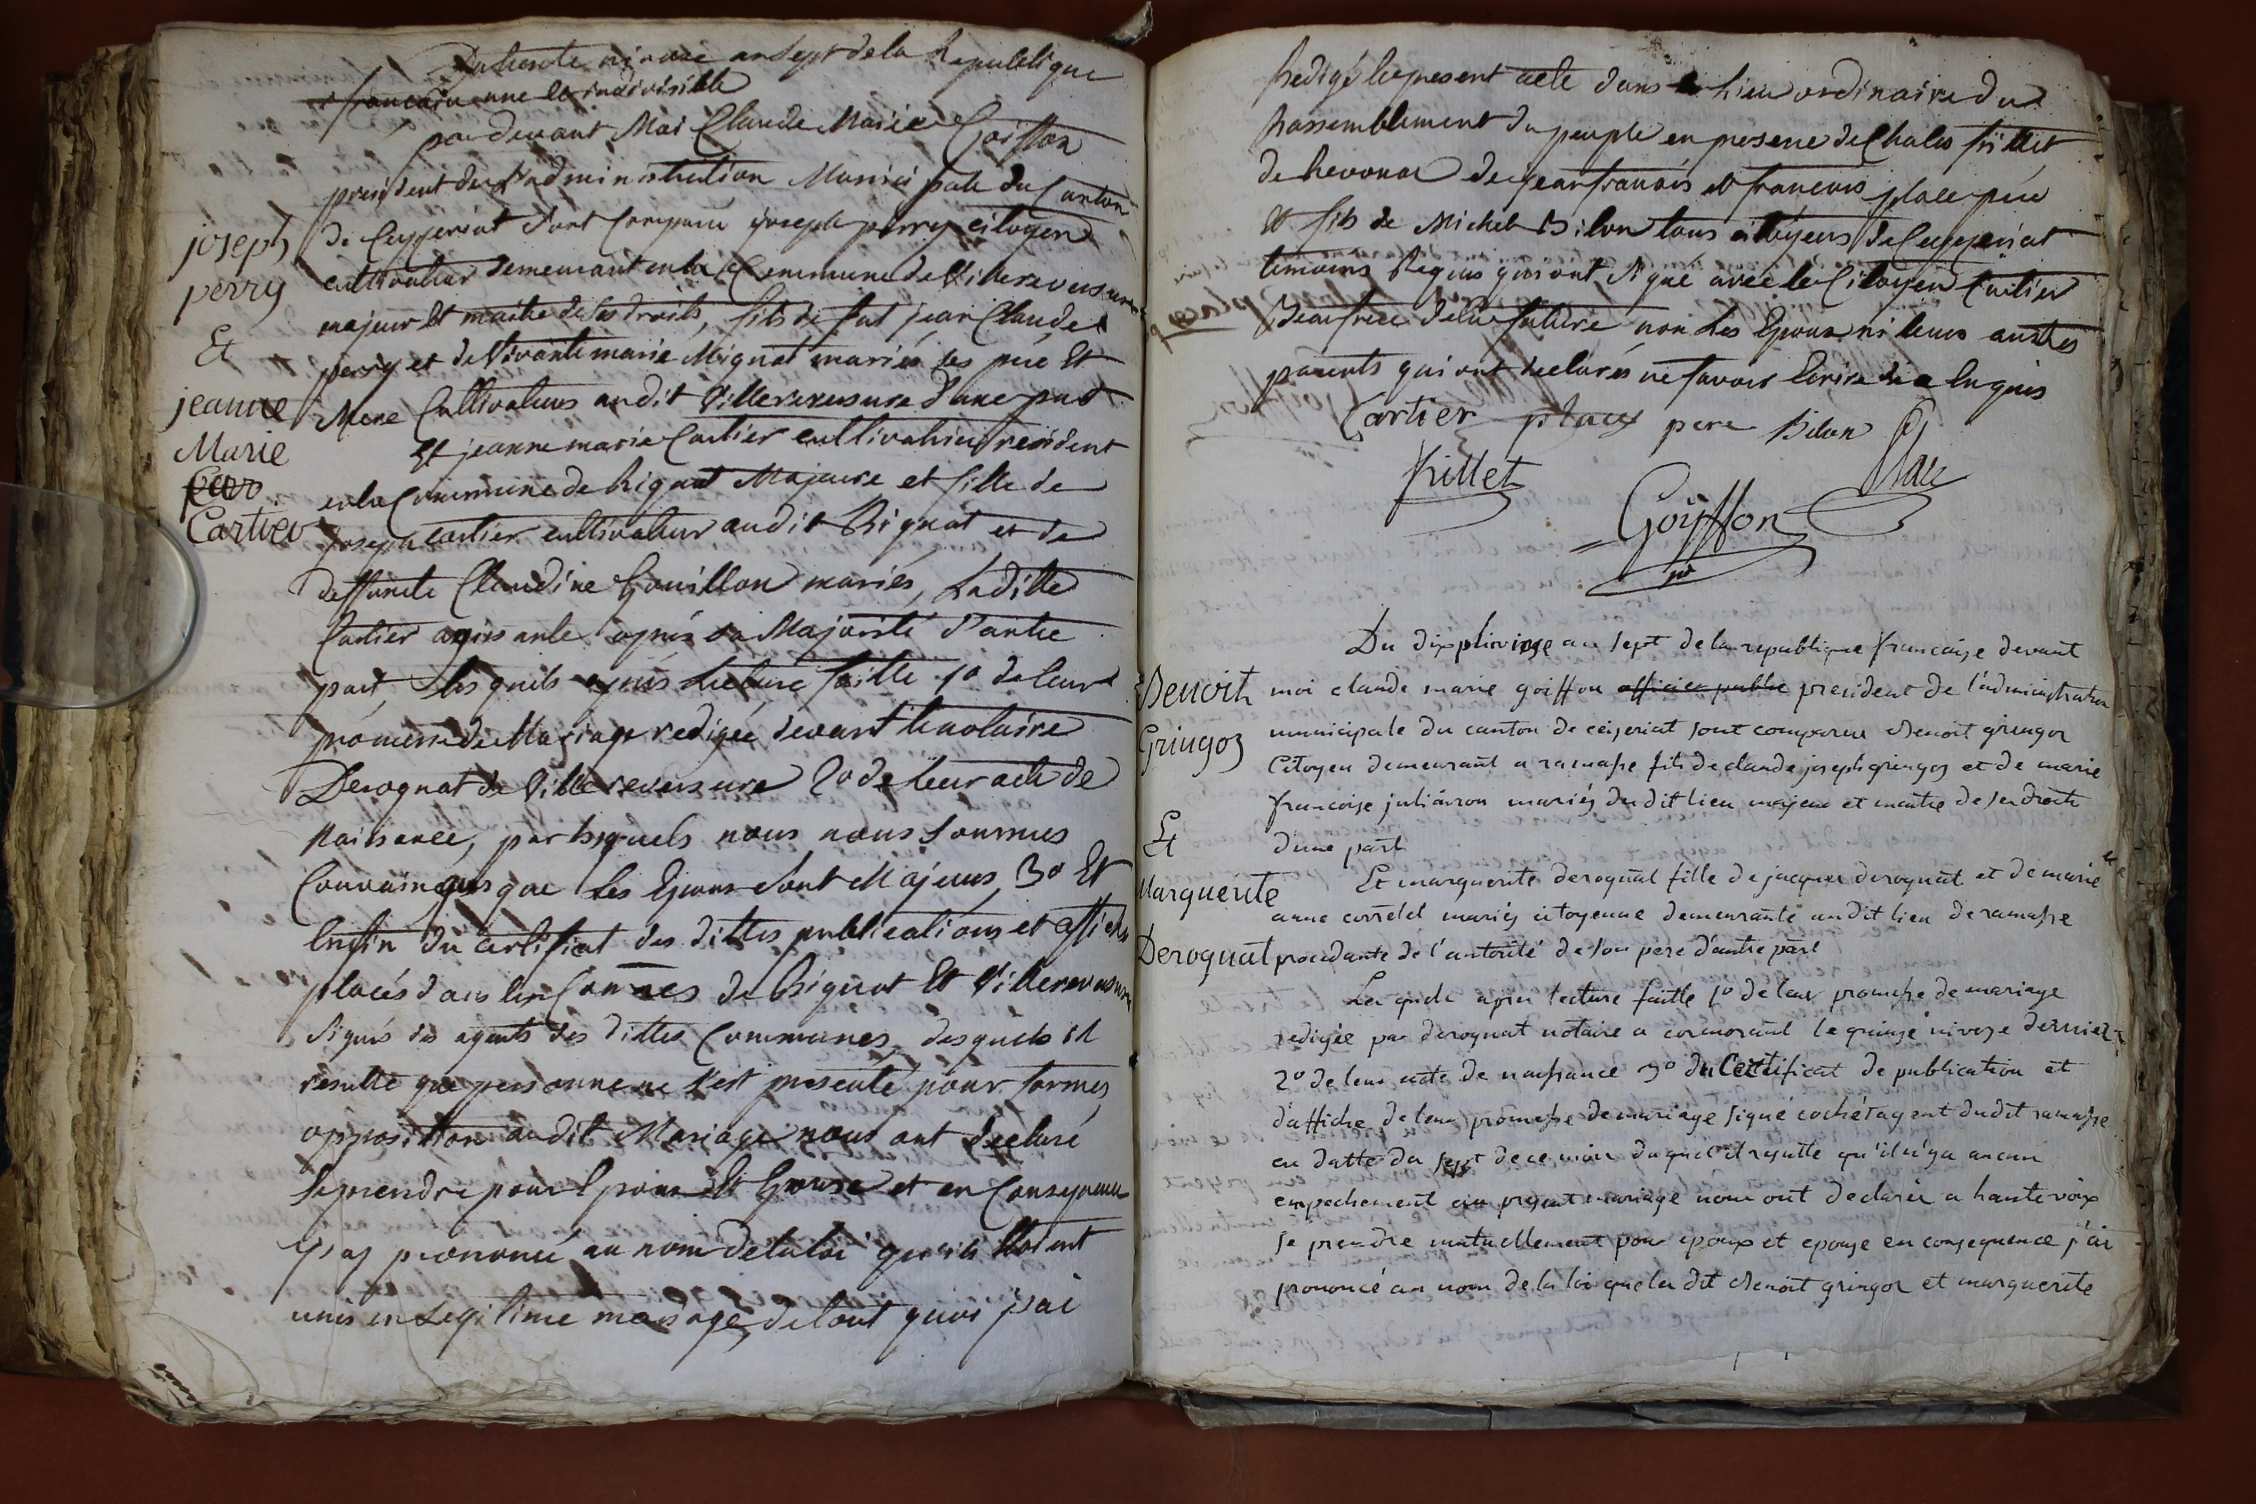 Du trente nivose an sept de la Republique
francaise une et indivisible
par devant Moi Claude Marie Goiffon
president de l'administration Municipale du Canton
de Ceyzeriat sont Comparu joseph perry citoyen
cultivateur demeurant en la Commune de Villereversure
majeur Et maitre de ses droits, fils de fut jean Claude
perry et de Vivante marie Mignat mariés ses pere Et
Mere Cultivateurs audit Villereversure d'une part
Et jeanne marie Cartier cultivatrice resident
en la Commune de Rignat Majeure et fille de
joseph Cartier cultivateur audit Rignat et de
deffuncte Claudine Gouillon mariés, Laditte
Cartier agissante après sa Majorité d'autre
part, Lesquels après Lecture faitte 1o de leur
promesse de Mariage redigée devant le notaire
Derognat de Villereversure 2o de leur acte de
Naissance, par lesquels nous nous sommes
Convaincus que Les Epoux sont Majeurs, 3o Et
Enfin du certificat des dittes publications et affiches
placés dans les Connes de Rignat Et Villereversure
signés des agents des dittes Communes, desquels il
resulte que personne ne s'est presenté pour former
opposition audit Mariage nous ont declaré
se prendre pour Epoux Et Epouse et en Consequence
j'ai prononcé au nom de la loi qu'ils etoient
unis en Legitime mariage, de tout quoi j'ai
joseph
perry
Et
jeanne
Marie
Cartier
Redigé le present acte dans le Lieu ordinaire du
Rassemblement du peuple en presence de Charles frillet
de Revonas de jean francois et francois place pere
Et fils de Michel Bilon tous citoyens de Ceyzeriat
temoins Requis qui ont signé avec le Citoyen Cartier
Beaufrere de la future non Les Epoux ni leurs autres
parents qui ont declarés ne savoir Ecrire de ce Enquis
Cartier place pere Bilon
frillet Place
Goiffon
Du dix pluviose an sept de la republique francaise devant
moi claude marie goiffon officier public president de l'administration
municipale du canton de ceizeriat sont comparu Benoit gringoz
Citoyen demeurant a ramasse fils de claude joseph gringoz et de marie
francoise julianron mariés du dit lieu majeur et maitre de ses droits
d'une part
Et marguerite derognat fille de jacques derognat et de marie
anne corretel mariés citoyenne demeurante audit lieu de ramasse
procedante de l'autorité de son pere d'autre part
Les quels apres lecture faitte 1o de leur promesse de mariage
redigée par derognat notaire a cormorant le quinze nivose dernier
2o de leur acte de naissance 3o du Certificat de publication et
d'affiche de leur promesse de mariage signé cochet agent dudit ramasse
en datte du sept de ce mois du quel il resulte qu'il n'y a aucun
empechement au present mariage nous ont declarés a haute voix
se prendre mutuellement pour epoux et epouse en consequence j'ai
prononcé au nom de la loi que les dit Benoit gringoz et marguerite
Benoit
Gringoz
Et
Marguerite
Derognat